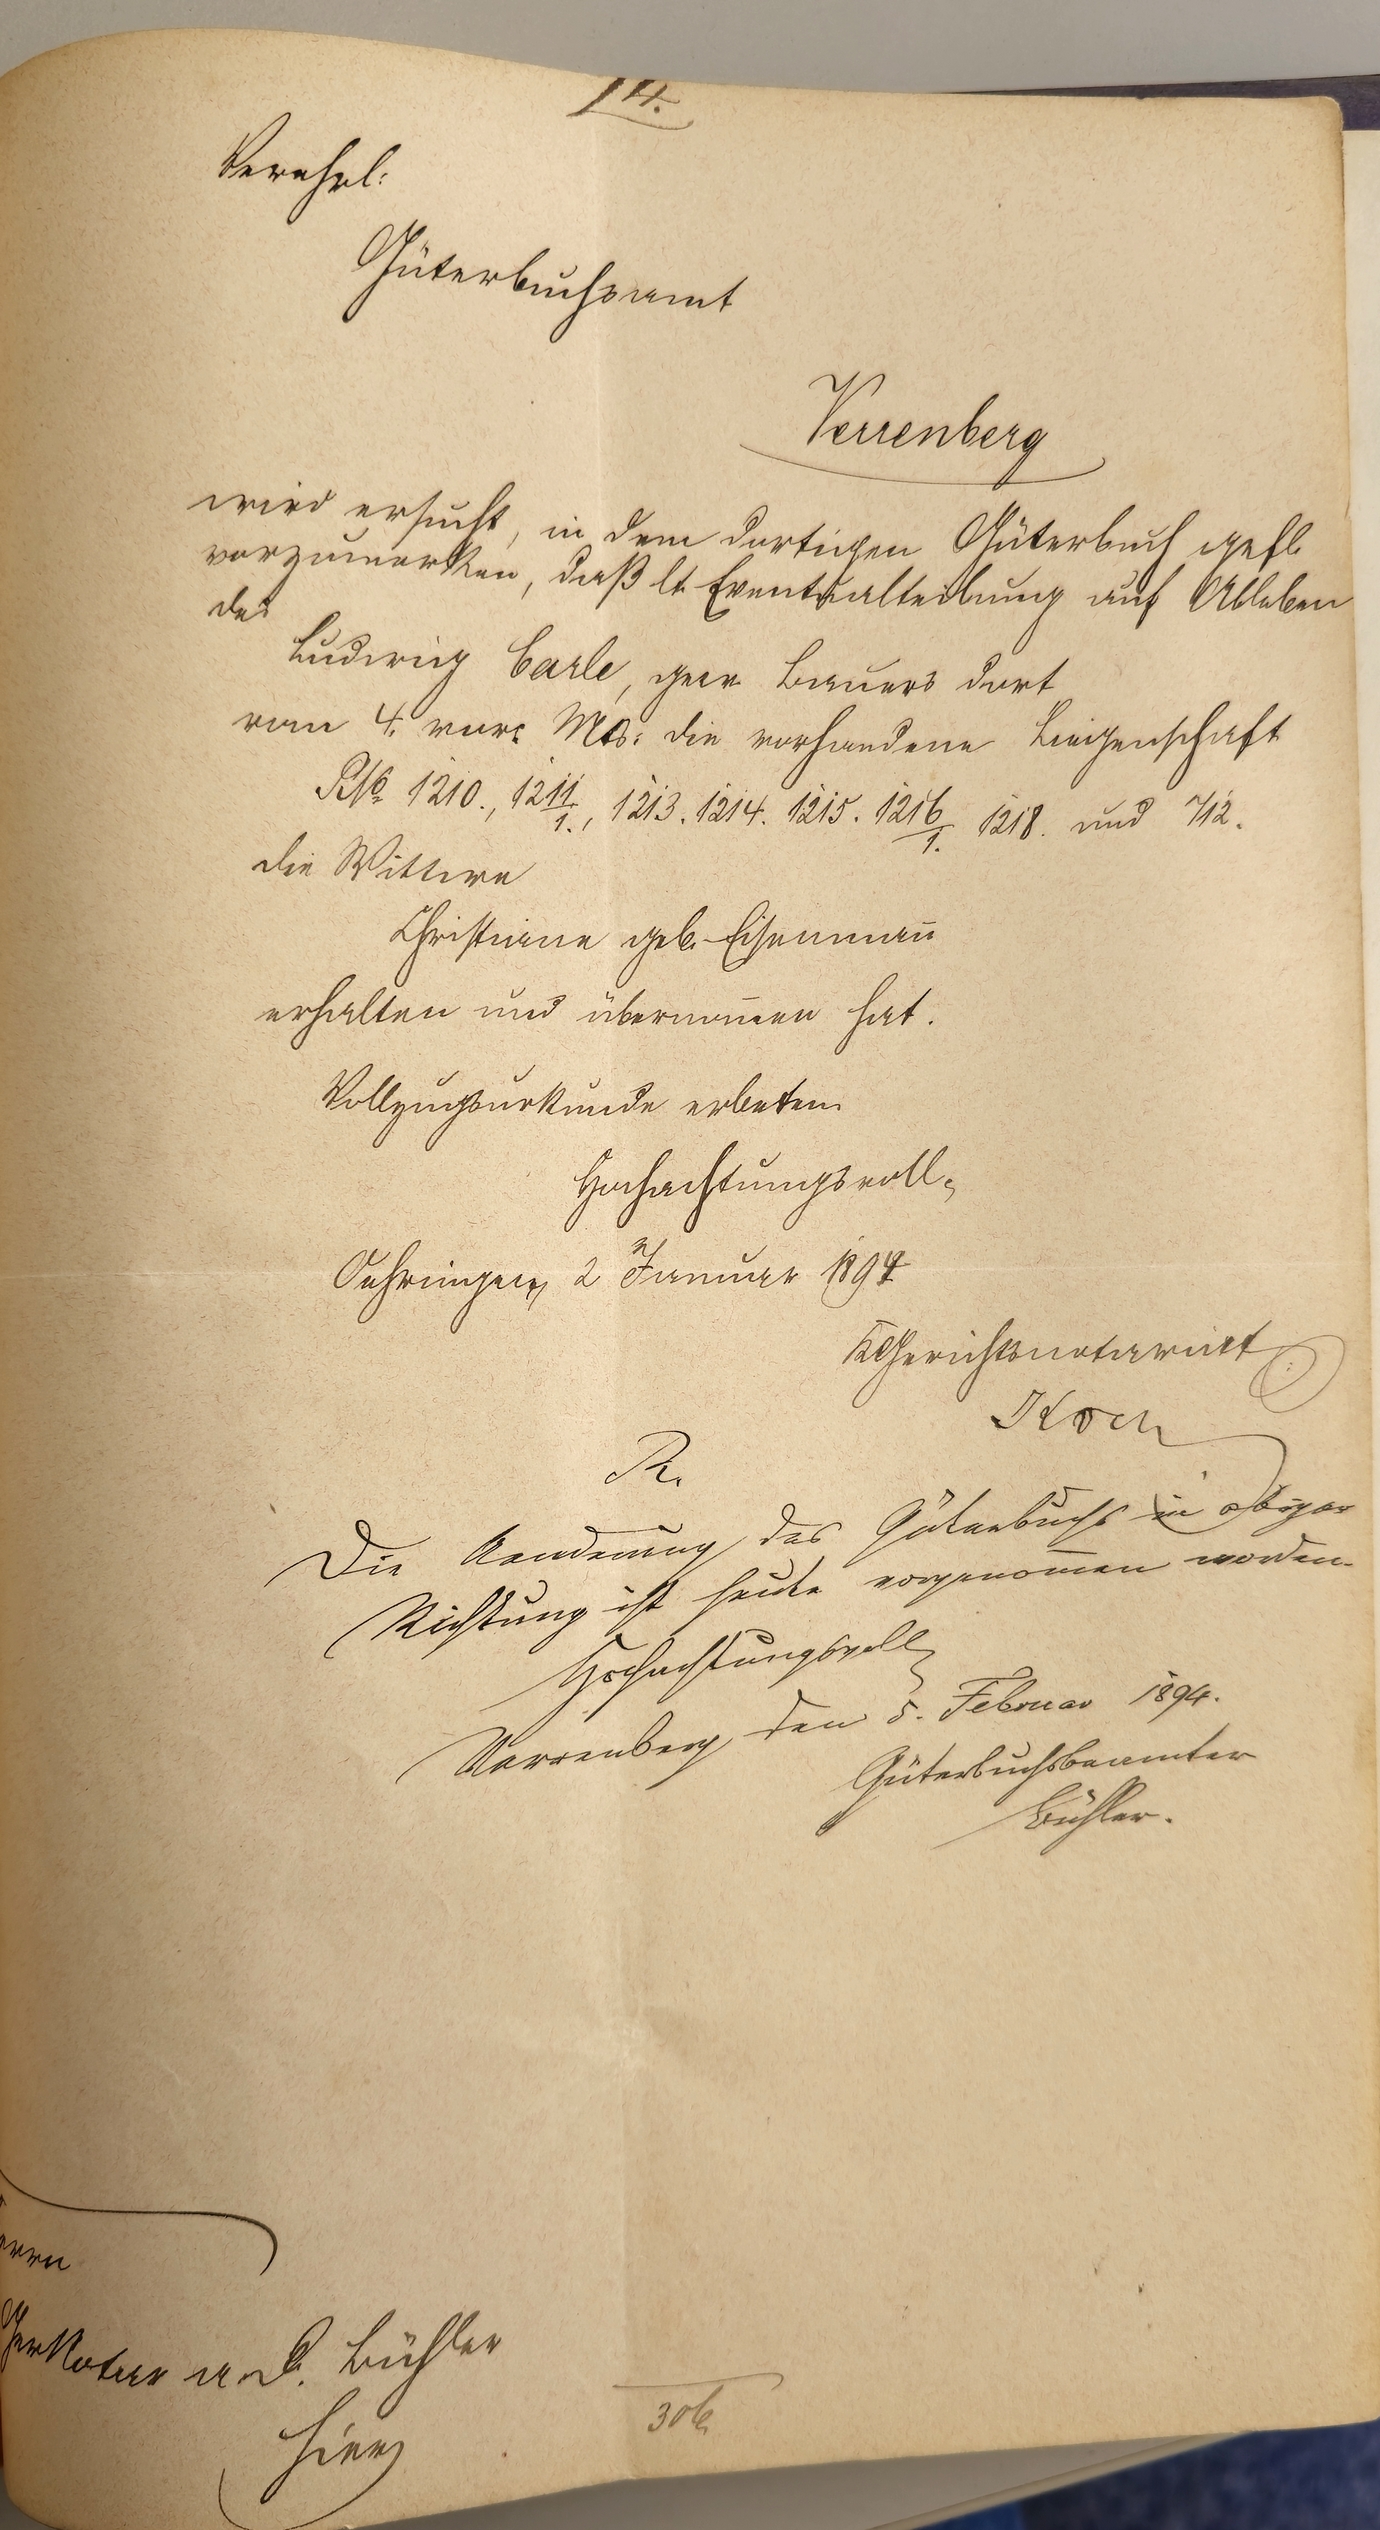 14.
Verehrl:
Güterbuchsamt
Verrenberg
wird ersucht, in dem dortigen Güterbuch gefl.
vorzumerken, daß lt. Eventualteilung auf Ableben
des
Ludwig Carle, gew. Bauers dort
vom 4. vor. Mts: die vorhandene Liegenschaft
P.No 1210., 1211/1., 1213. 1214. 1215. 1216/1. 1218. und 712.
die Wittwe
Christiane geb. Eisenmañ
erhalten und übernom̄en hat.
Vollzugsurkunde erbeten.
Hochachtungsvoll.
Oehringen, 2 Januar 1894
K Gerichtsnotariat
Koch
R.
Die Aenderung des Güterbuchs in obiger
Richtung ist heute vorgenom̄en worden.
Hochachtungsvoll
Verrenberg den 5. Februar 1894.
Güterbuchsbeamter
Bühler.
Notar a. D. Bühler
hier
306